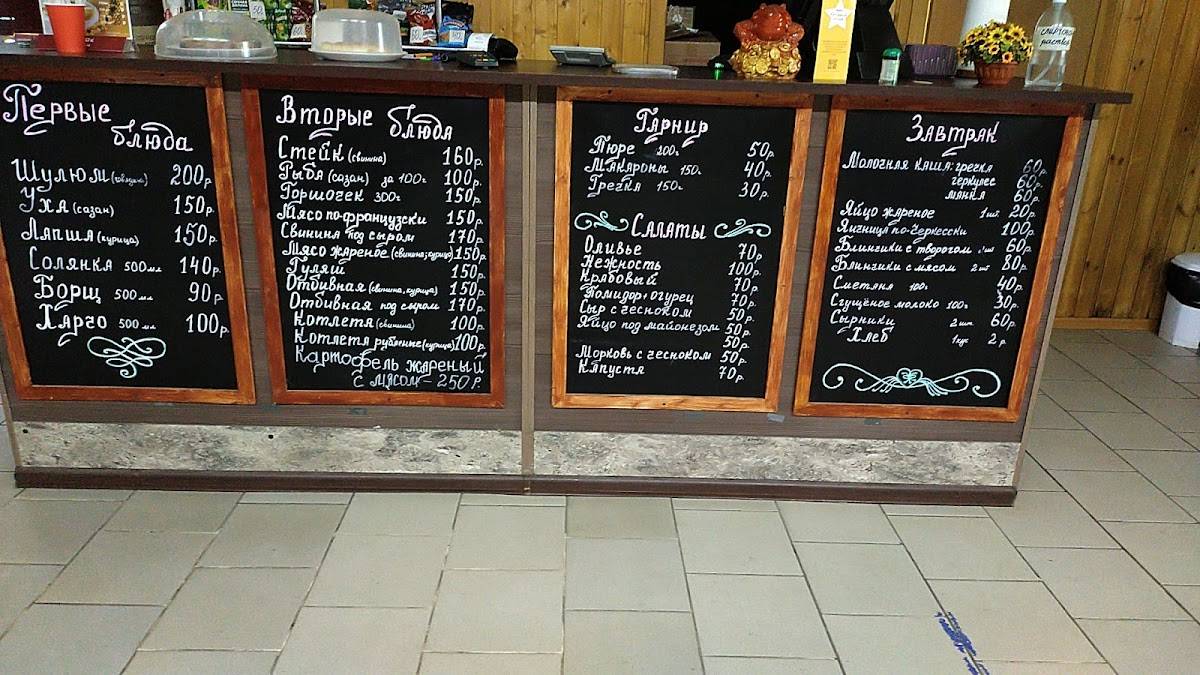 Первые
блюда
Шулюм (говядина) 200р.
Уха (сазан) 150р.
Лапша (курица) 150р.
Солянка 500мл 140р.
Борщ 500мл 90р.
Харчо 500мл 100р.
Вторые
блюда
Стейк (свинина) 160р.
Рыба (сазан) за 100г 100р.
Горшочек 300г 150р.
Мясо по-французски 150р.
Свинина под сыром 170р.
Мясо жареное (свинина, курица) 150р.
Гуляш 150р.
Отбивная (свинина, курица) 150р.
Отбивная под сыром 170р.
Котлета (свинина) 100р.
Котлета рубленые (курица) 100р.
Картофель жареный
с мясом - 250р.
Гарнир
Пюре 200г 50р.
Макароны 150г 40р.
Гречка 150г 30р.
Салаты
Оливье 70р.
Нежность 100р.
Крабовый 70р.
Помидор+огурец 70р.
Сыр с чесноком 50р.
Яйцо под майонезом 50р.
Морковь с чесноком 50р.
Капуста 70р.
Завтрак
Молочная каша: гречка 60р.
геркулес 60р.
манка 60р.
Яйцо жареное 1шт. 20р.
Яичница по-черкесски 100р.
Блинчики с творогом 2шт 60р.
Блинчики с мясом 2шт 80р.
Сметана 100г 40р.
Сгущёное молоко 100г 30р.
Сырники 2шт. 60р.
Хлеб 1кус 2р.